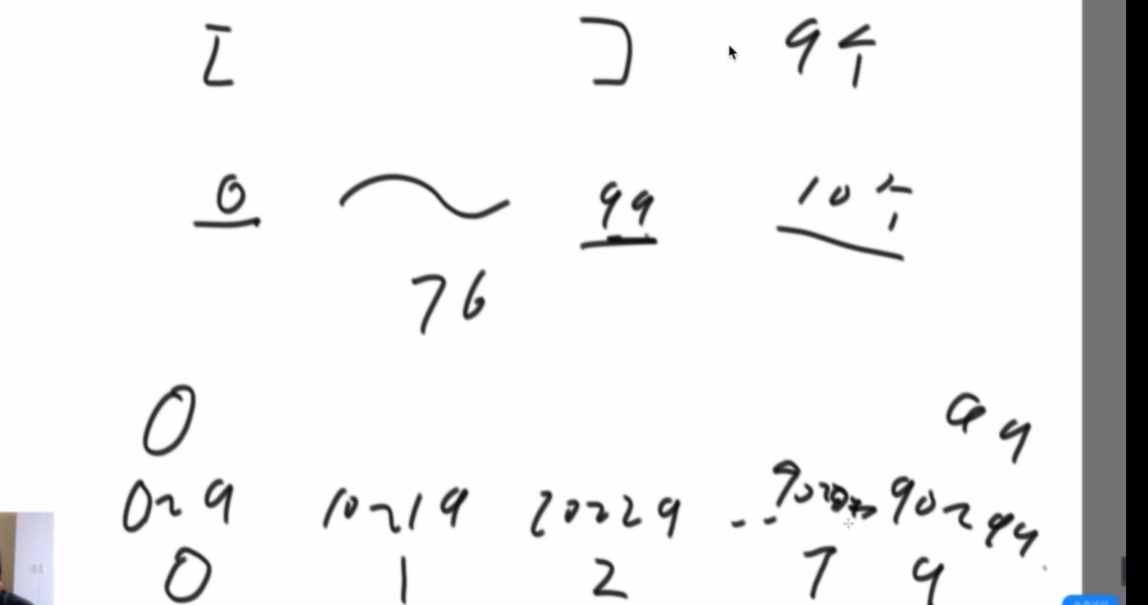 [ ] 9个
0 ~ 99 10个
76
0 99
0~9 10~19 20~29 ·· 90~99
0 1 2 7 9